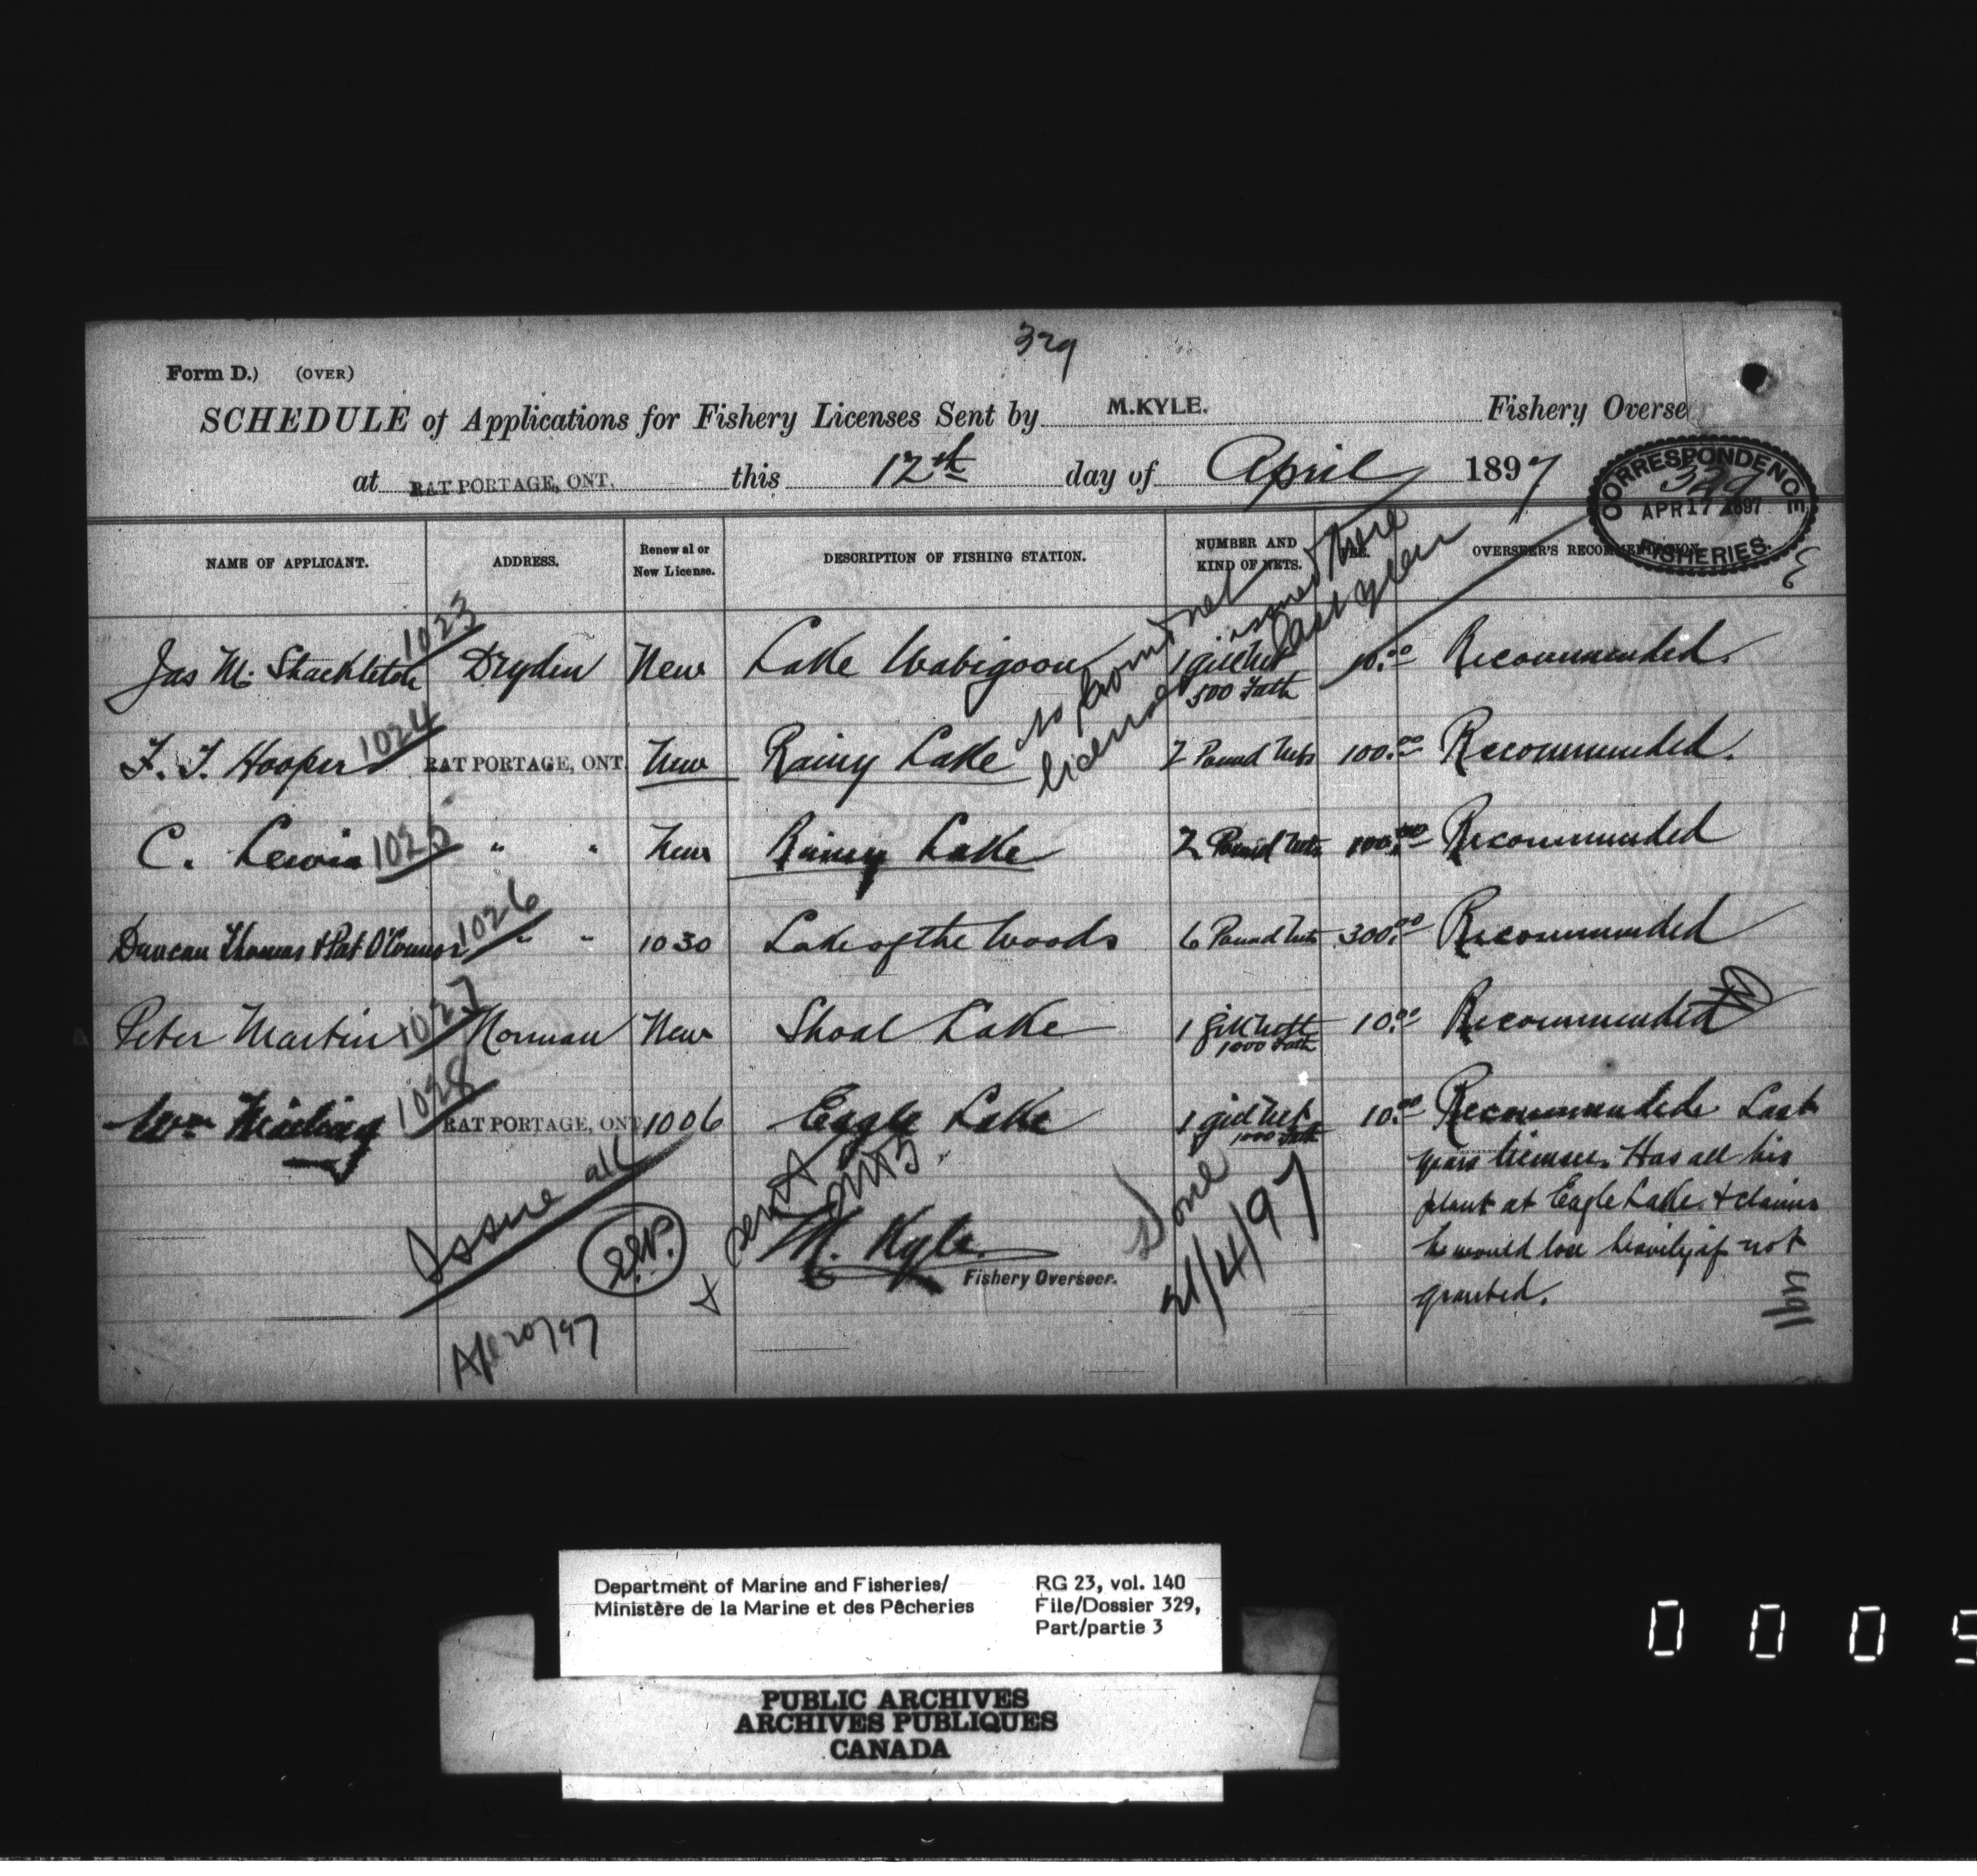 329
Form D.) (OVER)
SCHEDULE of Applications for Fishery Licenses Sent by M.KYLE. Fishery Overse
at RAT PORTAGE, ONT. this 12th day of April 1897
CORRESPONDENCE
329
APR 17 1897
FISHERIES.
NAME OF APPLICANT. ADDRESS. Renewal or New License. DESCRIPTION OF FISHING STATION. NUMBER AND KIND OF NETS. FEE. OVERSEER'S RECOMMENDATION.
No pound net
licenses issued there
last year
Jas M. Shackleton 1023 Dryden New Lake Wabigoon 1 gill net 500 Fath 10.00 Recommended.
F. T. Hooper 1024 RAT PORTAGE, ONT. New Rainy Lake 2 Pound Nets 100.00 Recommended.
C. Lewis 1025 " " New Rainy Lake 2 Pound Nets 100.00 Recommended
Duncan Thomas & Pat O'Connor 1026 " " 1030 Lake of the Woods 6 Pound Nets 300.00 Recommended
Peter Martin 1027 Norman New Shoal Lake 1 gill nett 1000 Fath 10.00 Recommended
Wm 1028 RAT PORTAGE, ONT 1006 Eagle Lake 1 gill net 1000 Fath 10.00 Recommended. Last
years license. Has all his
plant at Eagle Lake & claims
he would lose heavily if not
granted.
Issue all
Ap 20/97
sent
M. Kyle.
Fishery Overseer.
Done
21/4/97
Department of Marine and Fisheries/
Ministère de la Marine et des Pêcheries
RG 23, vol. 140
File/Dossier 329,
Part/partie 3
PUBLIC ARCHIVES
ARCHIVES PUBLIQUES
CANADA
0 0 0 5